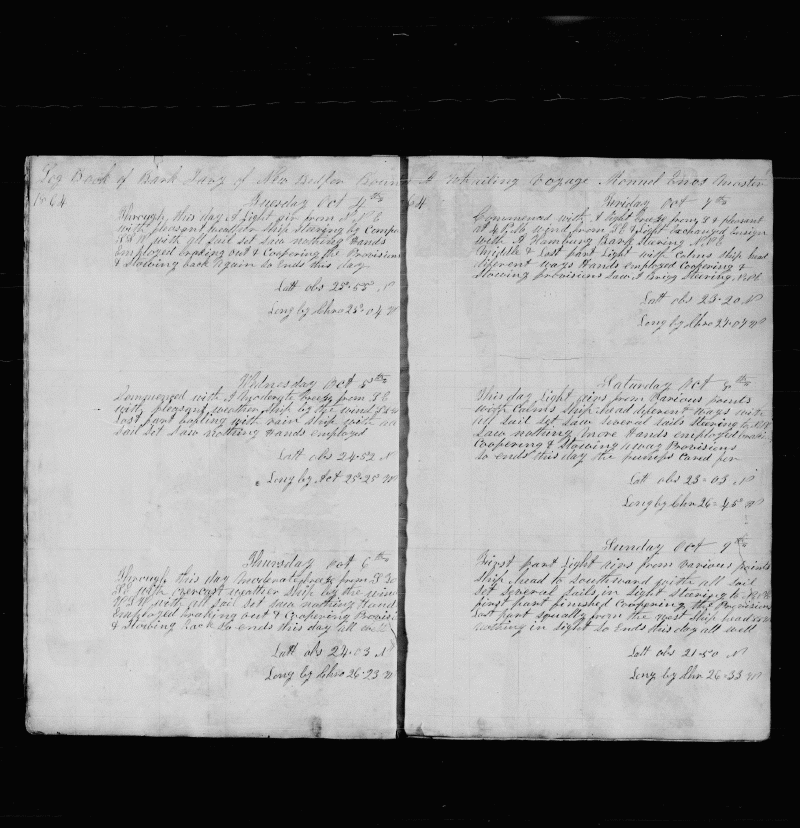 Log Book of Bark Java of New Bedfor Bound A Whailing Voyage Manuel Enos Master
1864
Tuesday Oct 4th
Through this day A Light air from S S E
with pleasant weather ship stearing by Compass
S S W with all sail set Saw nothing Hands
employed braking out & Coopering the Provisions
& Stowing back Again So Ends this day
Latt obs 25-55 N
Long by Chro 25-04 W
Wednesday Oct 5th
Commenced with A Moderate breeze from S E
with pleasant weather ship by the wind
Last part with rain ship with all
sail set Saw nothing Hands employed
Latt obs 24-52 N
Long by Act 25-25 W
Thursday Oct 6th
Through this day Moderate breeze from
S E with overcast weather Ship by the wind
with all sail set saw nothing Hands
employed braking out & Coopering Provisi
& Stowing back So ends this day all well
Latt obs 24-03 N
Long by Chro 26-23 W
64
Friday Oct 7th
Commenced with A light breeze from & pleasant
at wind from S E & light exchanged Ensign
with A Hamburg Bark Stearing
Middle & Last part light with Calms ship head
diferent ways Hands employed Coopering &
Stowing provisions Saw A Brigg Stearing
Latt obs 23-20 N
Long by Chro 27-07 W
Saturday Oct 8th
This day light airs from Various points
with Calms ship head diferent ways with
all sail set Saw several sails Stearing to
Saw nothing more Hands employed
Coopering & Stowing away Provisions
So ends this day the pumps Cared for
Latt obs 23-05 N
Long by Chro 26-45 W
Sunday Oct 9th
First part Light airs from various points
Ship head to Southward with all sail
set several sails in Light Stearing to
first part finished Coopering the Provision
Last part squally from the Ship head
nothing in sight So Ends this day all well
Latt obs 21-50 N
Long by Chr 26-33 W